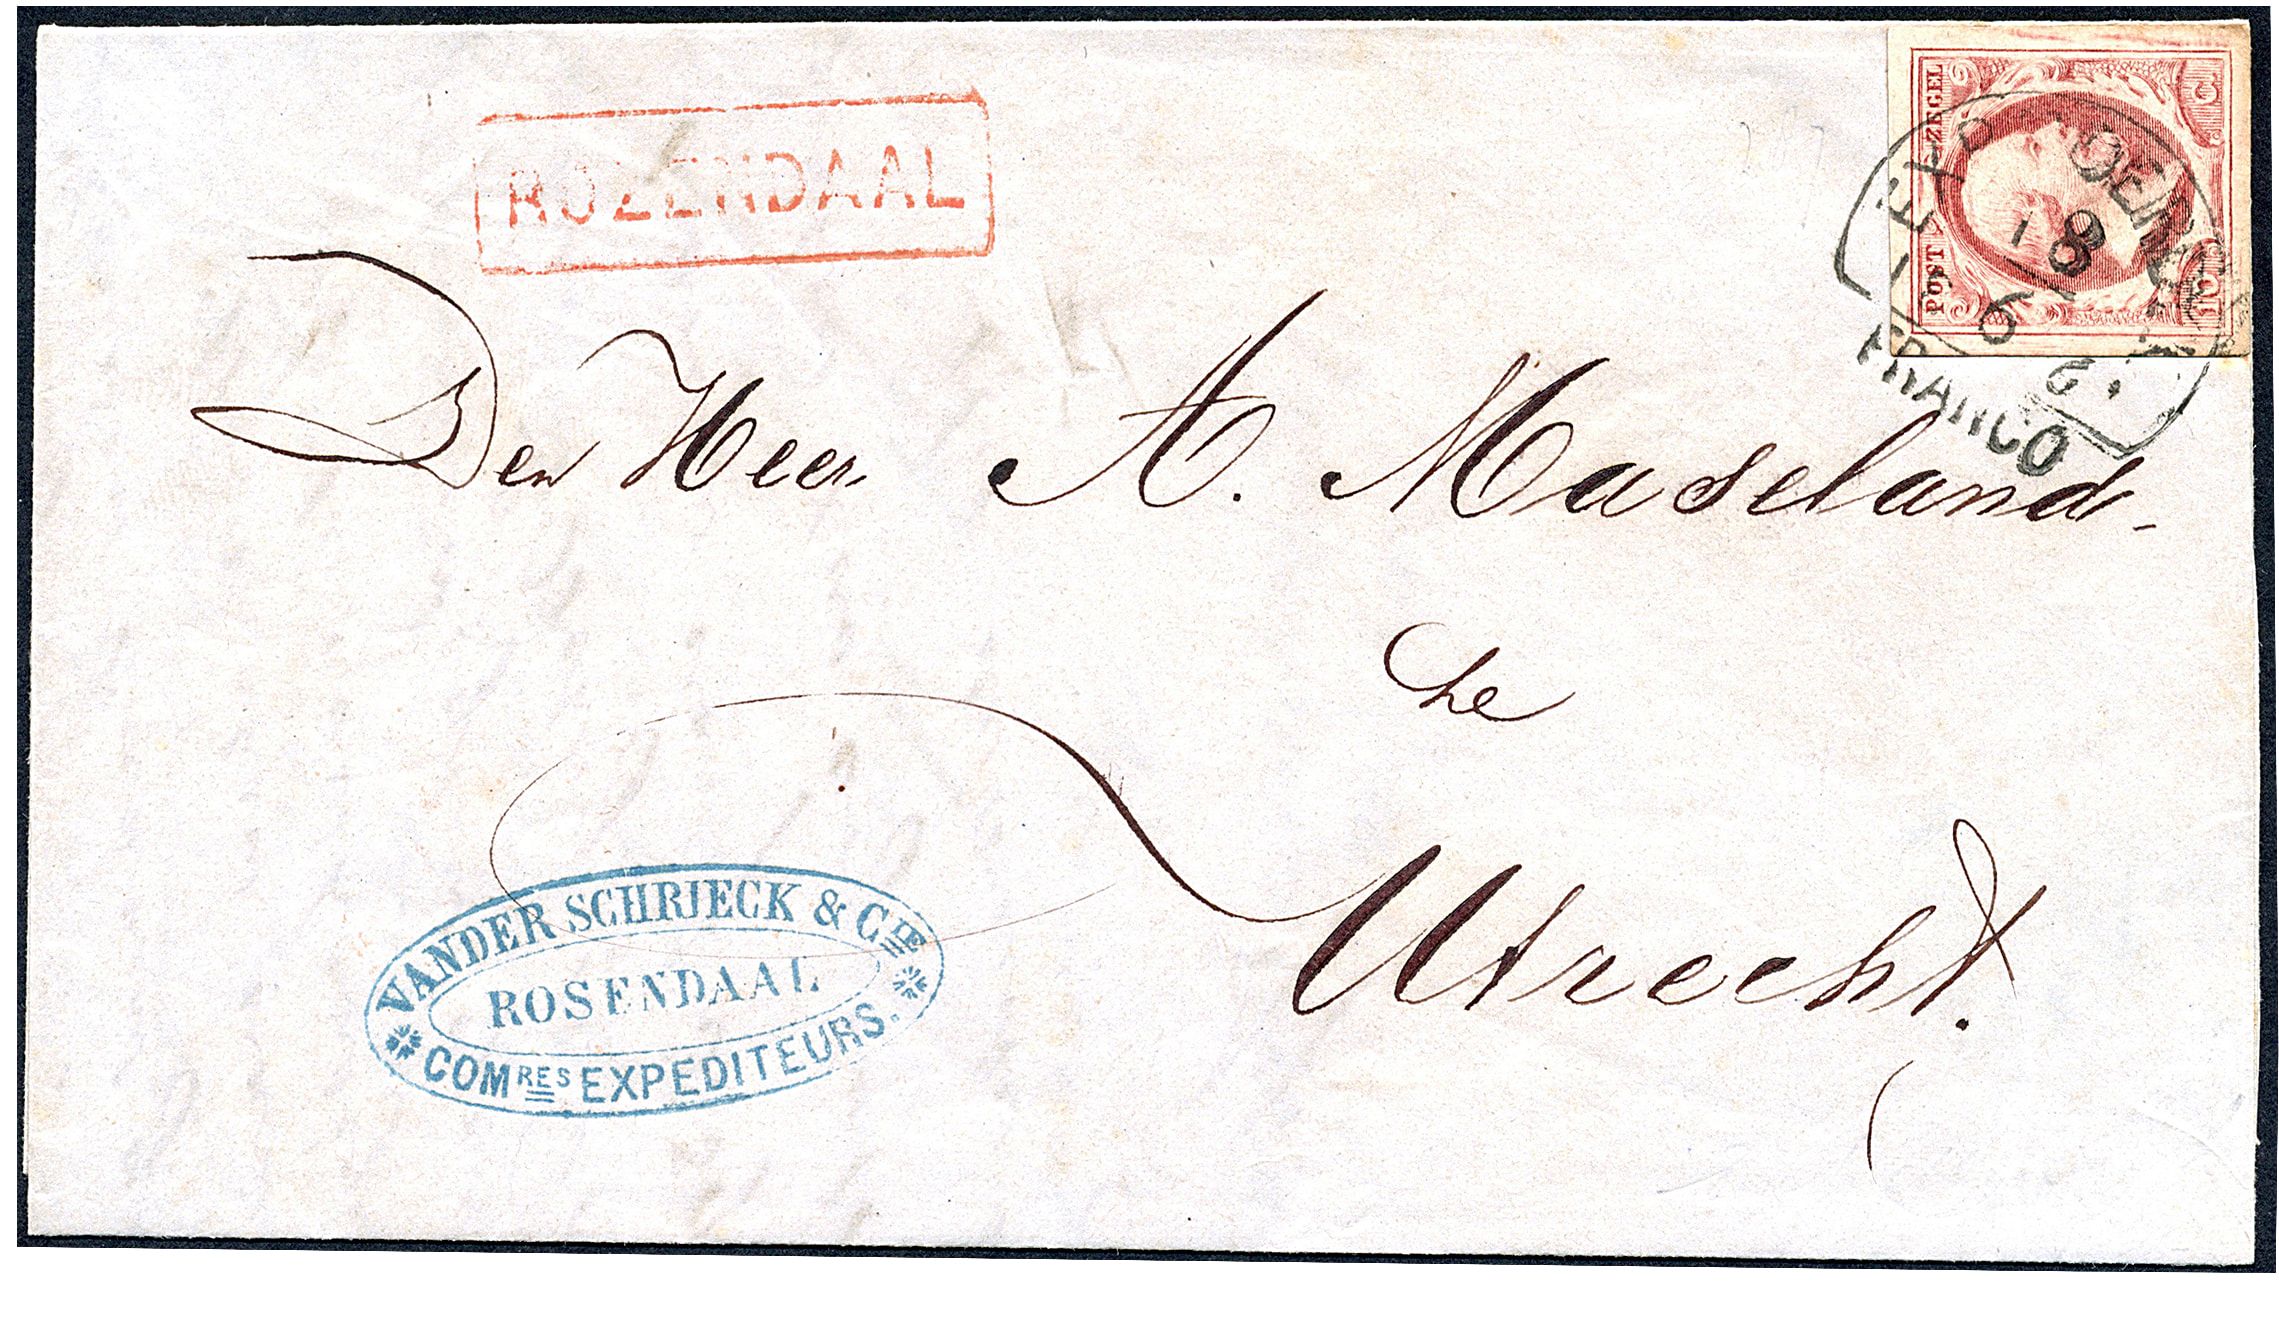 ROZENDAAL
POSTZEGEL
10 C
FRANCO
Den Heer A. Maseland
te
Utrecht.
VANDER SCHRIECK & CIE
ROSENDAAL
COMRES EXPEDITEURS.